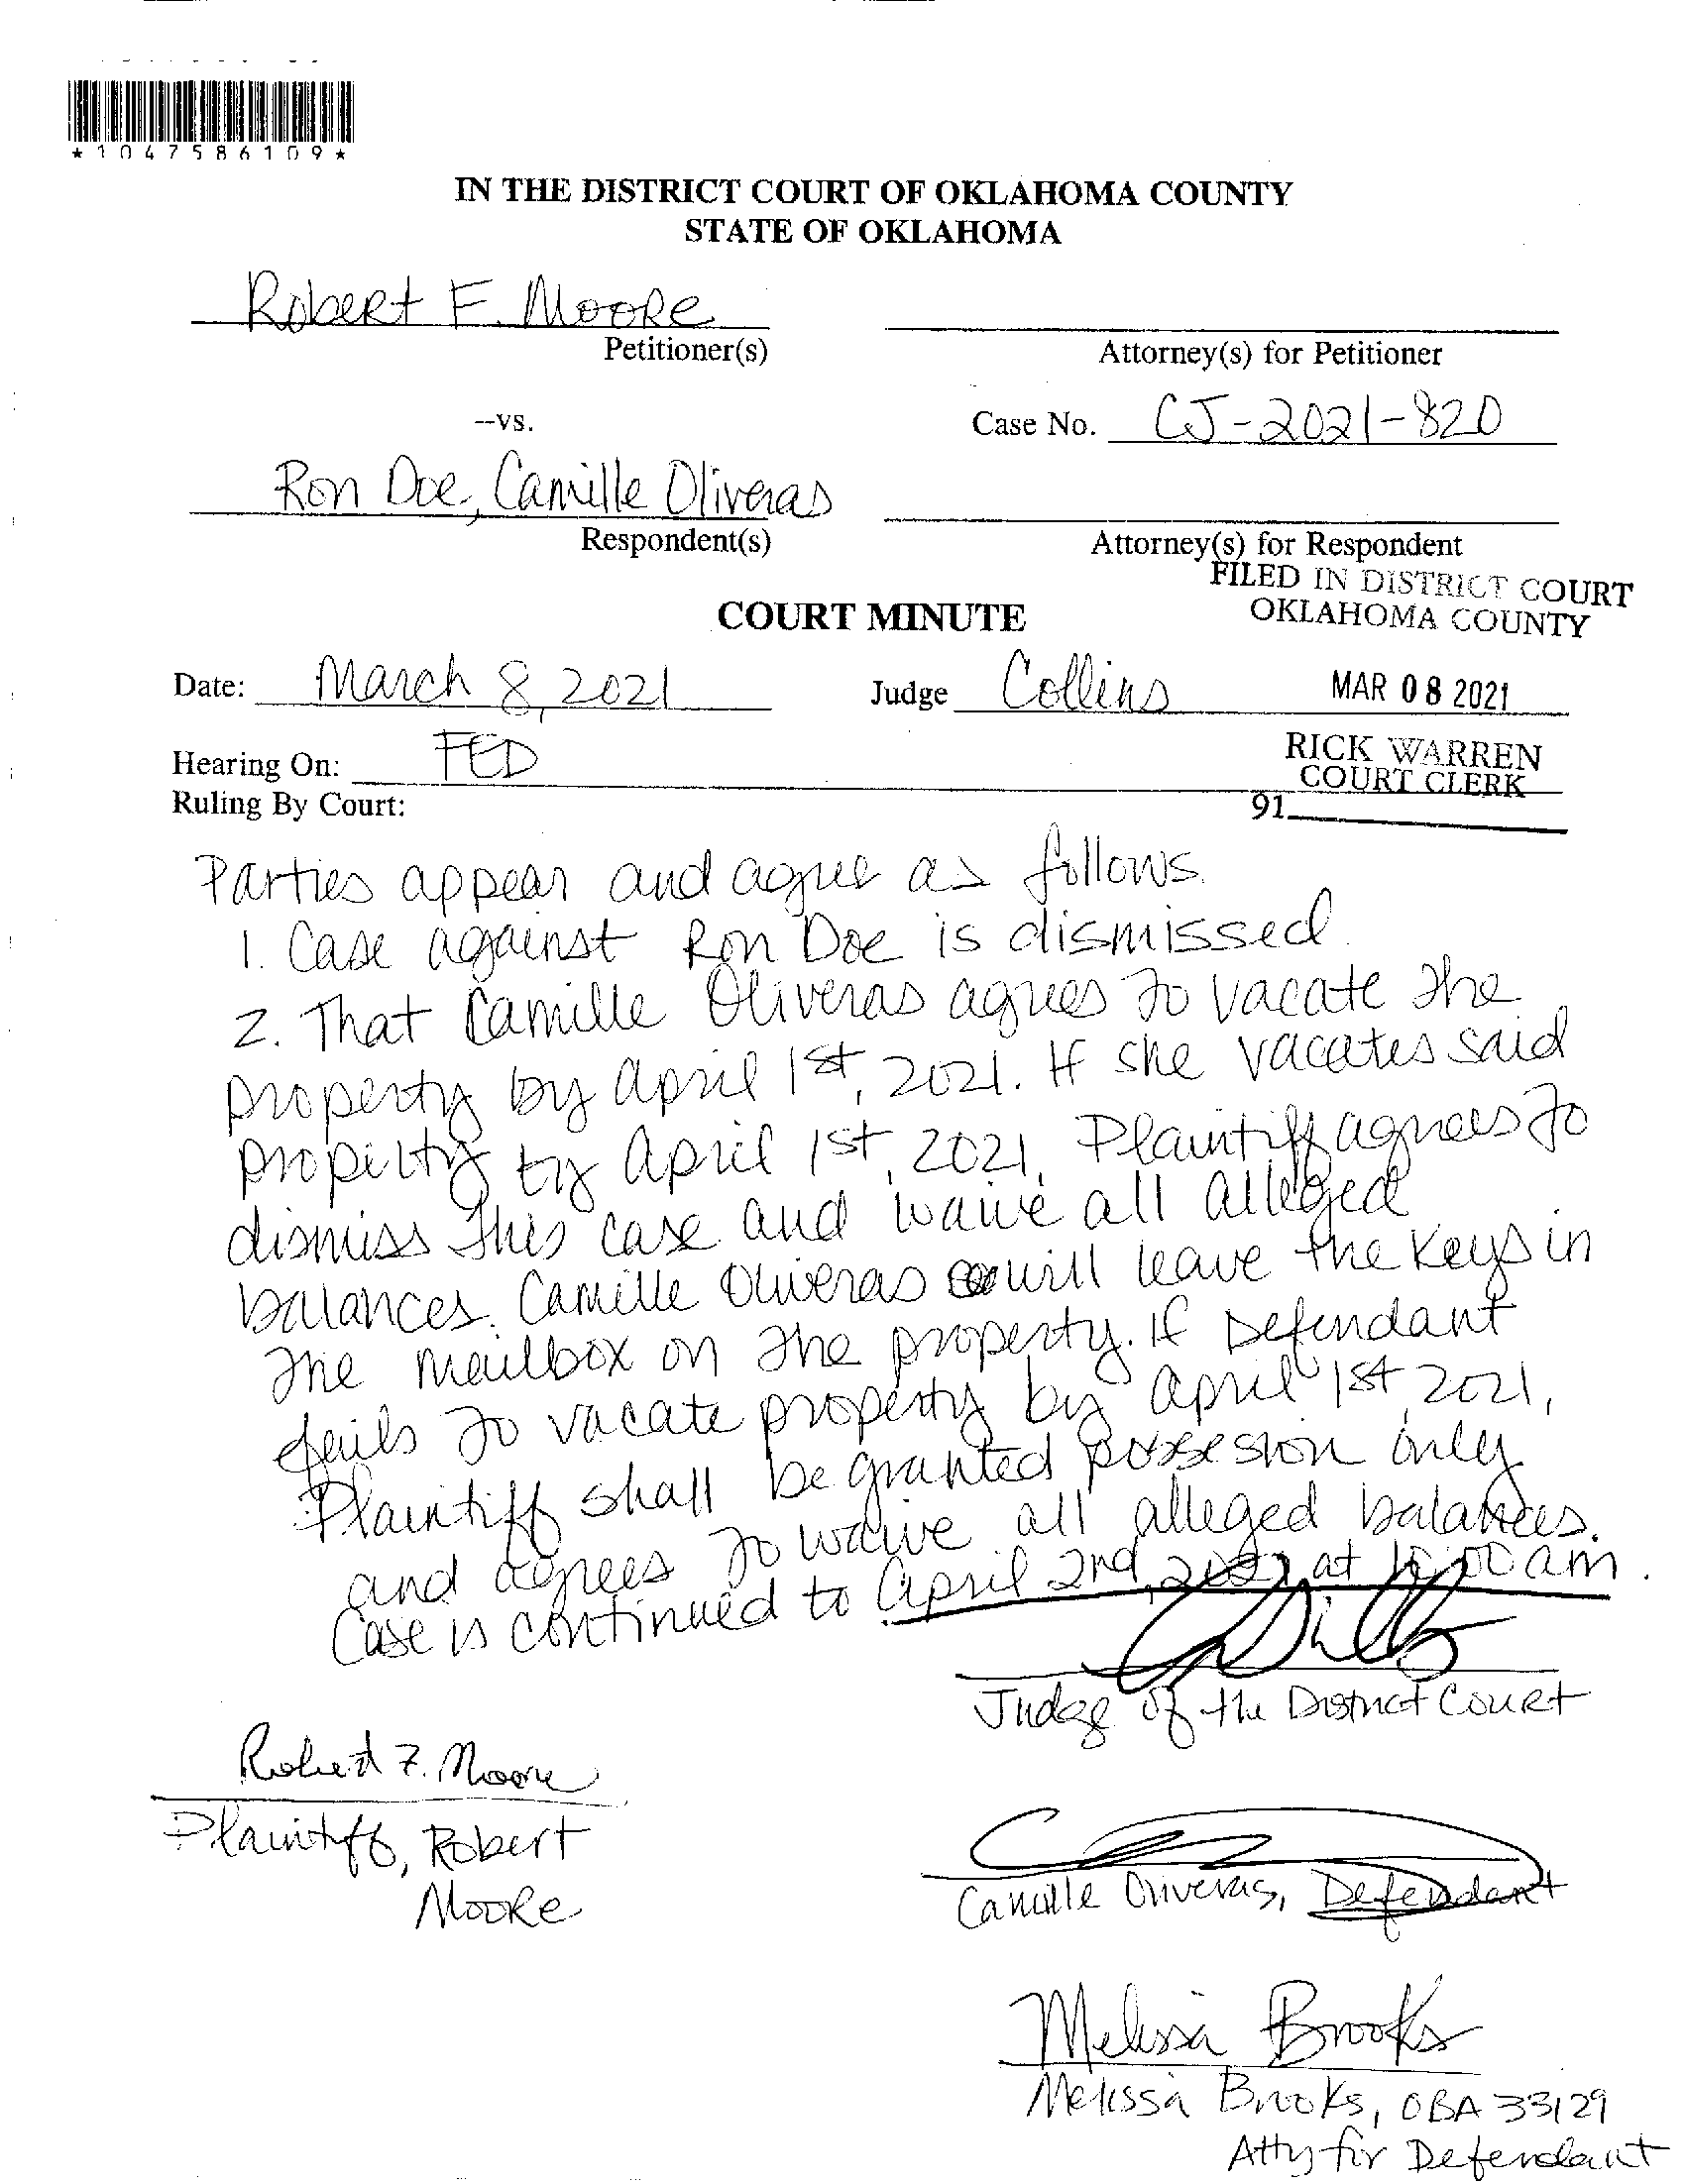 *1047586109*
IN THE DISTRICT COURT OF OKLAHOMA COUNTY
STATE OF OKLAHOMA
Robert F. Moore
Petitioner(s)
Attorney(s) for Petitioner
--vs.
Case No. CJ-2021-820
Ron Doe, Camille Oliveras
Respondent(s)
Attorney(s) for Respondent
FILED IN DISTRICT COURT
OKLAHOMA COUNTY
COURT MINUTE
Date: March 8, 2021
Judge Collins
MAR 08 2021
Hearing On: FED
RICK WARREN
COURT CLERK
Ruling By Court:
91
Parties appear and agree as follows.
1. Case against Ron Doe is dismissed.
2. That Camille Oliveras agrees to vacate the
property by April 1st, 2021. If she vacates said
property by April 1st, 2021, Plaintiff agrees to
dismiss this case and waive all alleged
balances. Camille Oliveras will leave the keys in
the mailbox on the property. If Defendant
fails to vacate property by April 1st, 2021,
Plaintiff shall be granted possesion only
and agrees to waive all alleged balances.
Case is continued to April 2nd, 2021 at 10:00 am.
Judge of the District Court
Robert F. Moore
Plaintiff, Robert
Moore
Camille Oliveras, Defendant
Melissa Brooks
Melissa Brooks, OBA 33129
Atty for Defendant